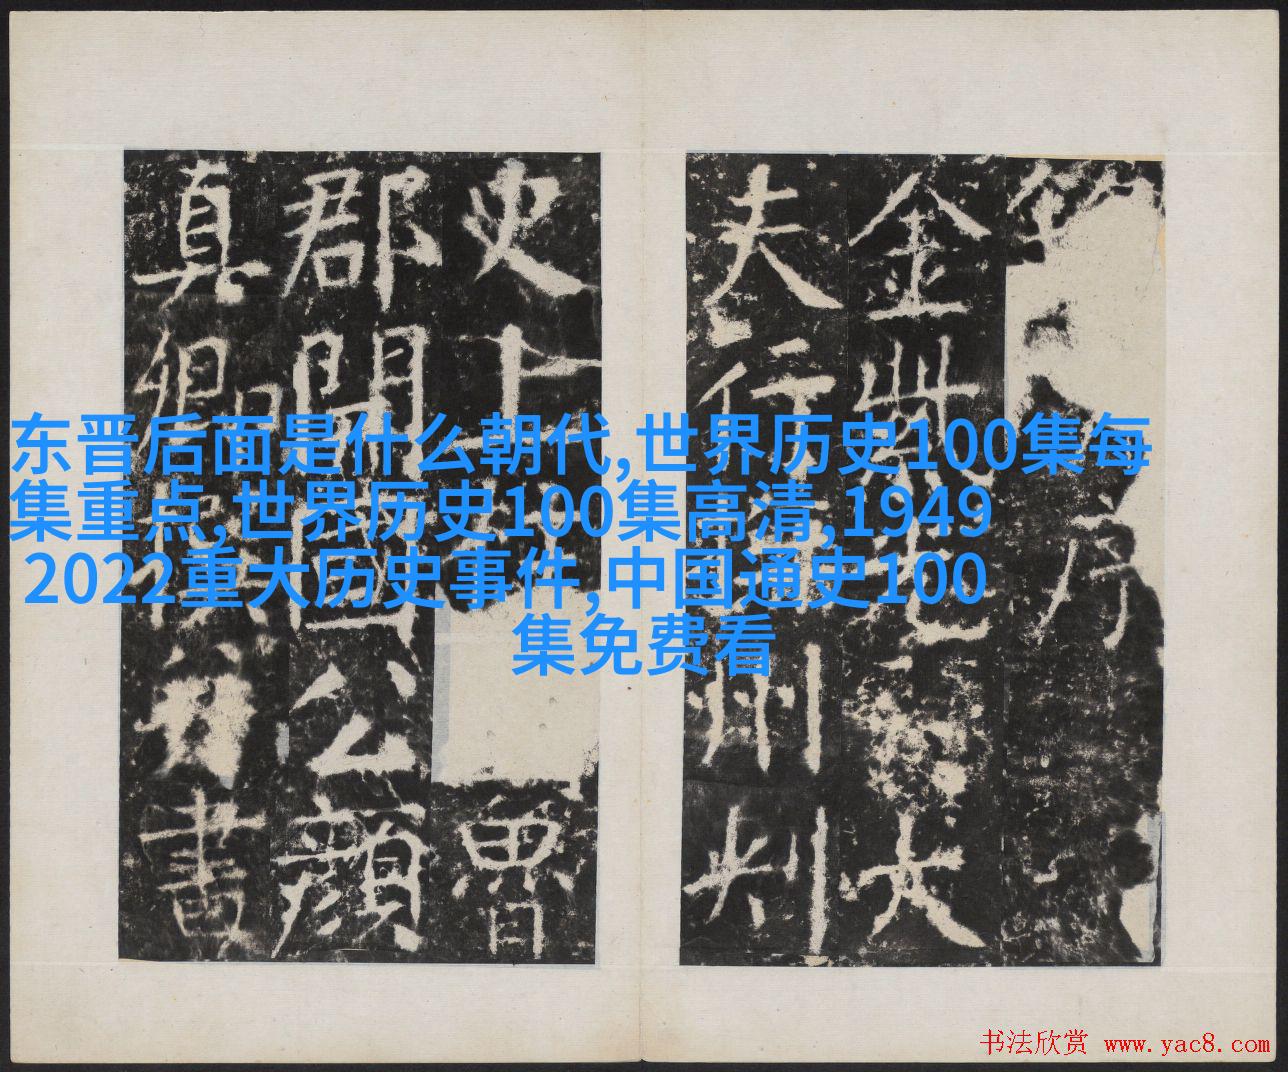 东晋后面是什么朝代,世界历史100集每
集重点,世界历史100集高清,1949
2022重大历史事件,中国通史100
集免费看
金紫光大
夫行州刺
史上魯
郡開國公顏
真卿撰書
书法欣赏 www.yac8.com